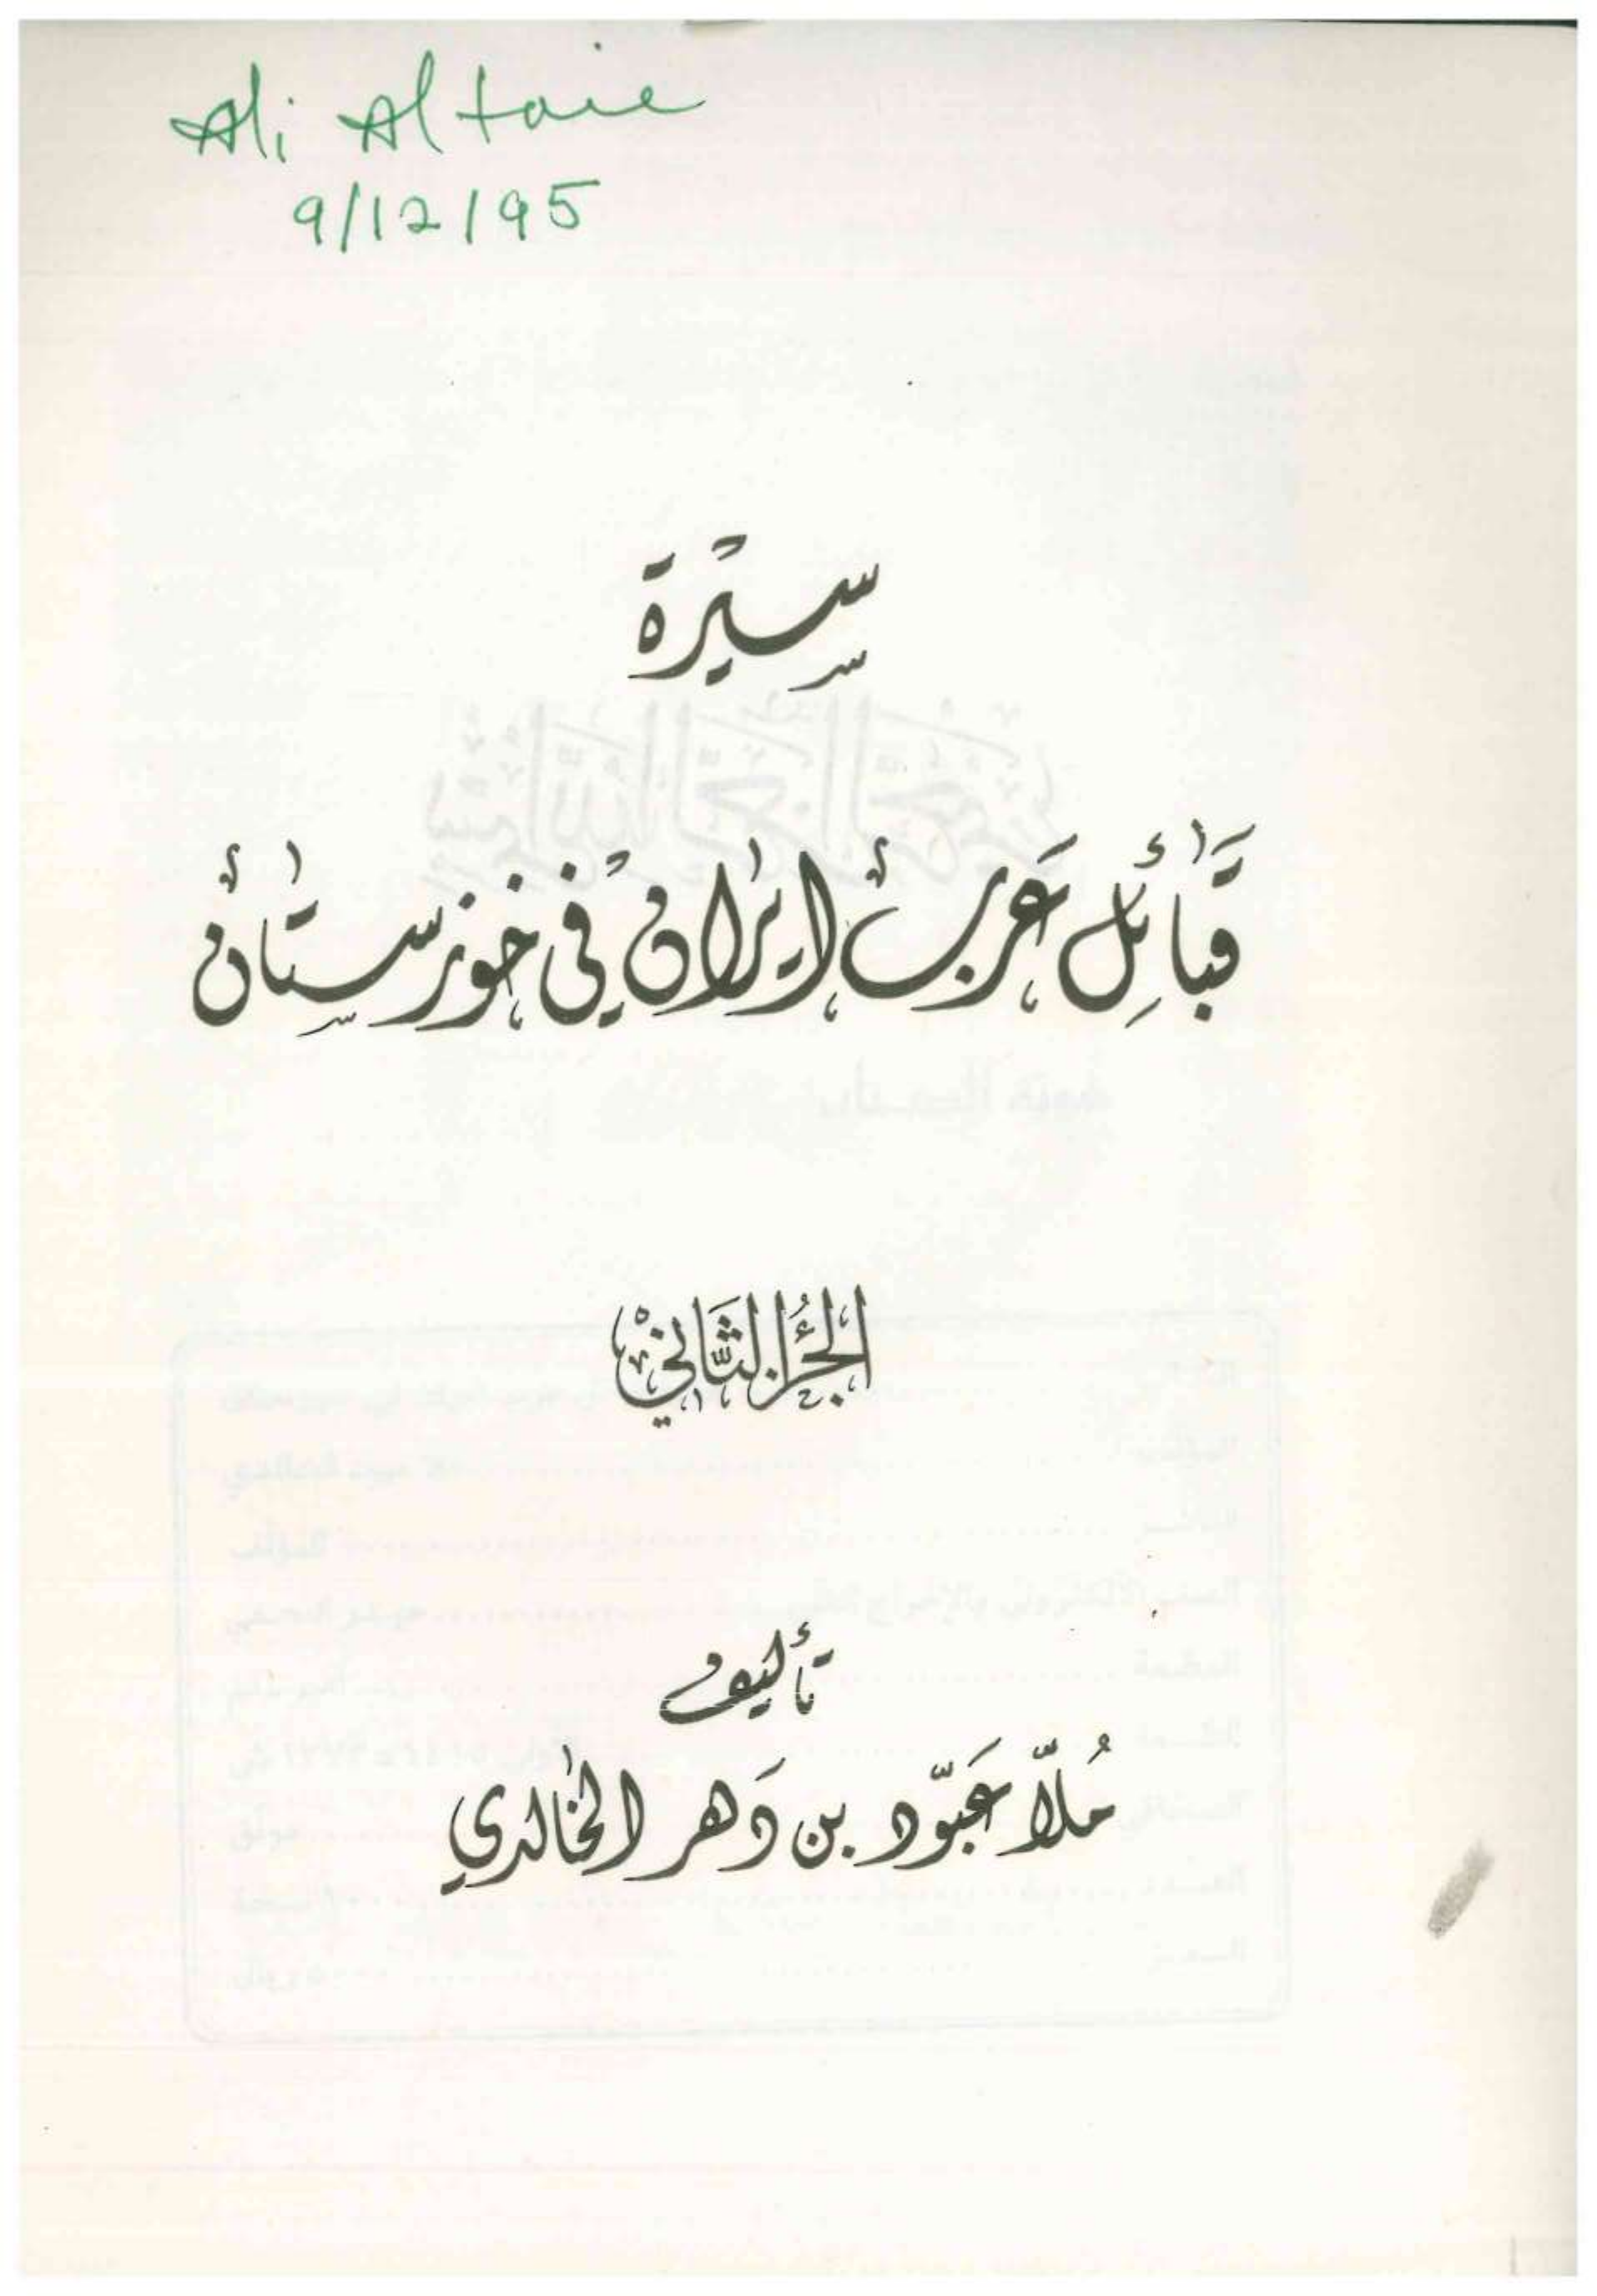 Ali Altaie
9/12/95
سيرة
قبائل عرب ايران في خوزستان
الجزء الثاني
تأليف
ملّا عبّود بن دهر الخالدي